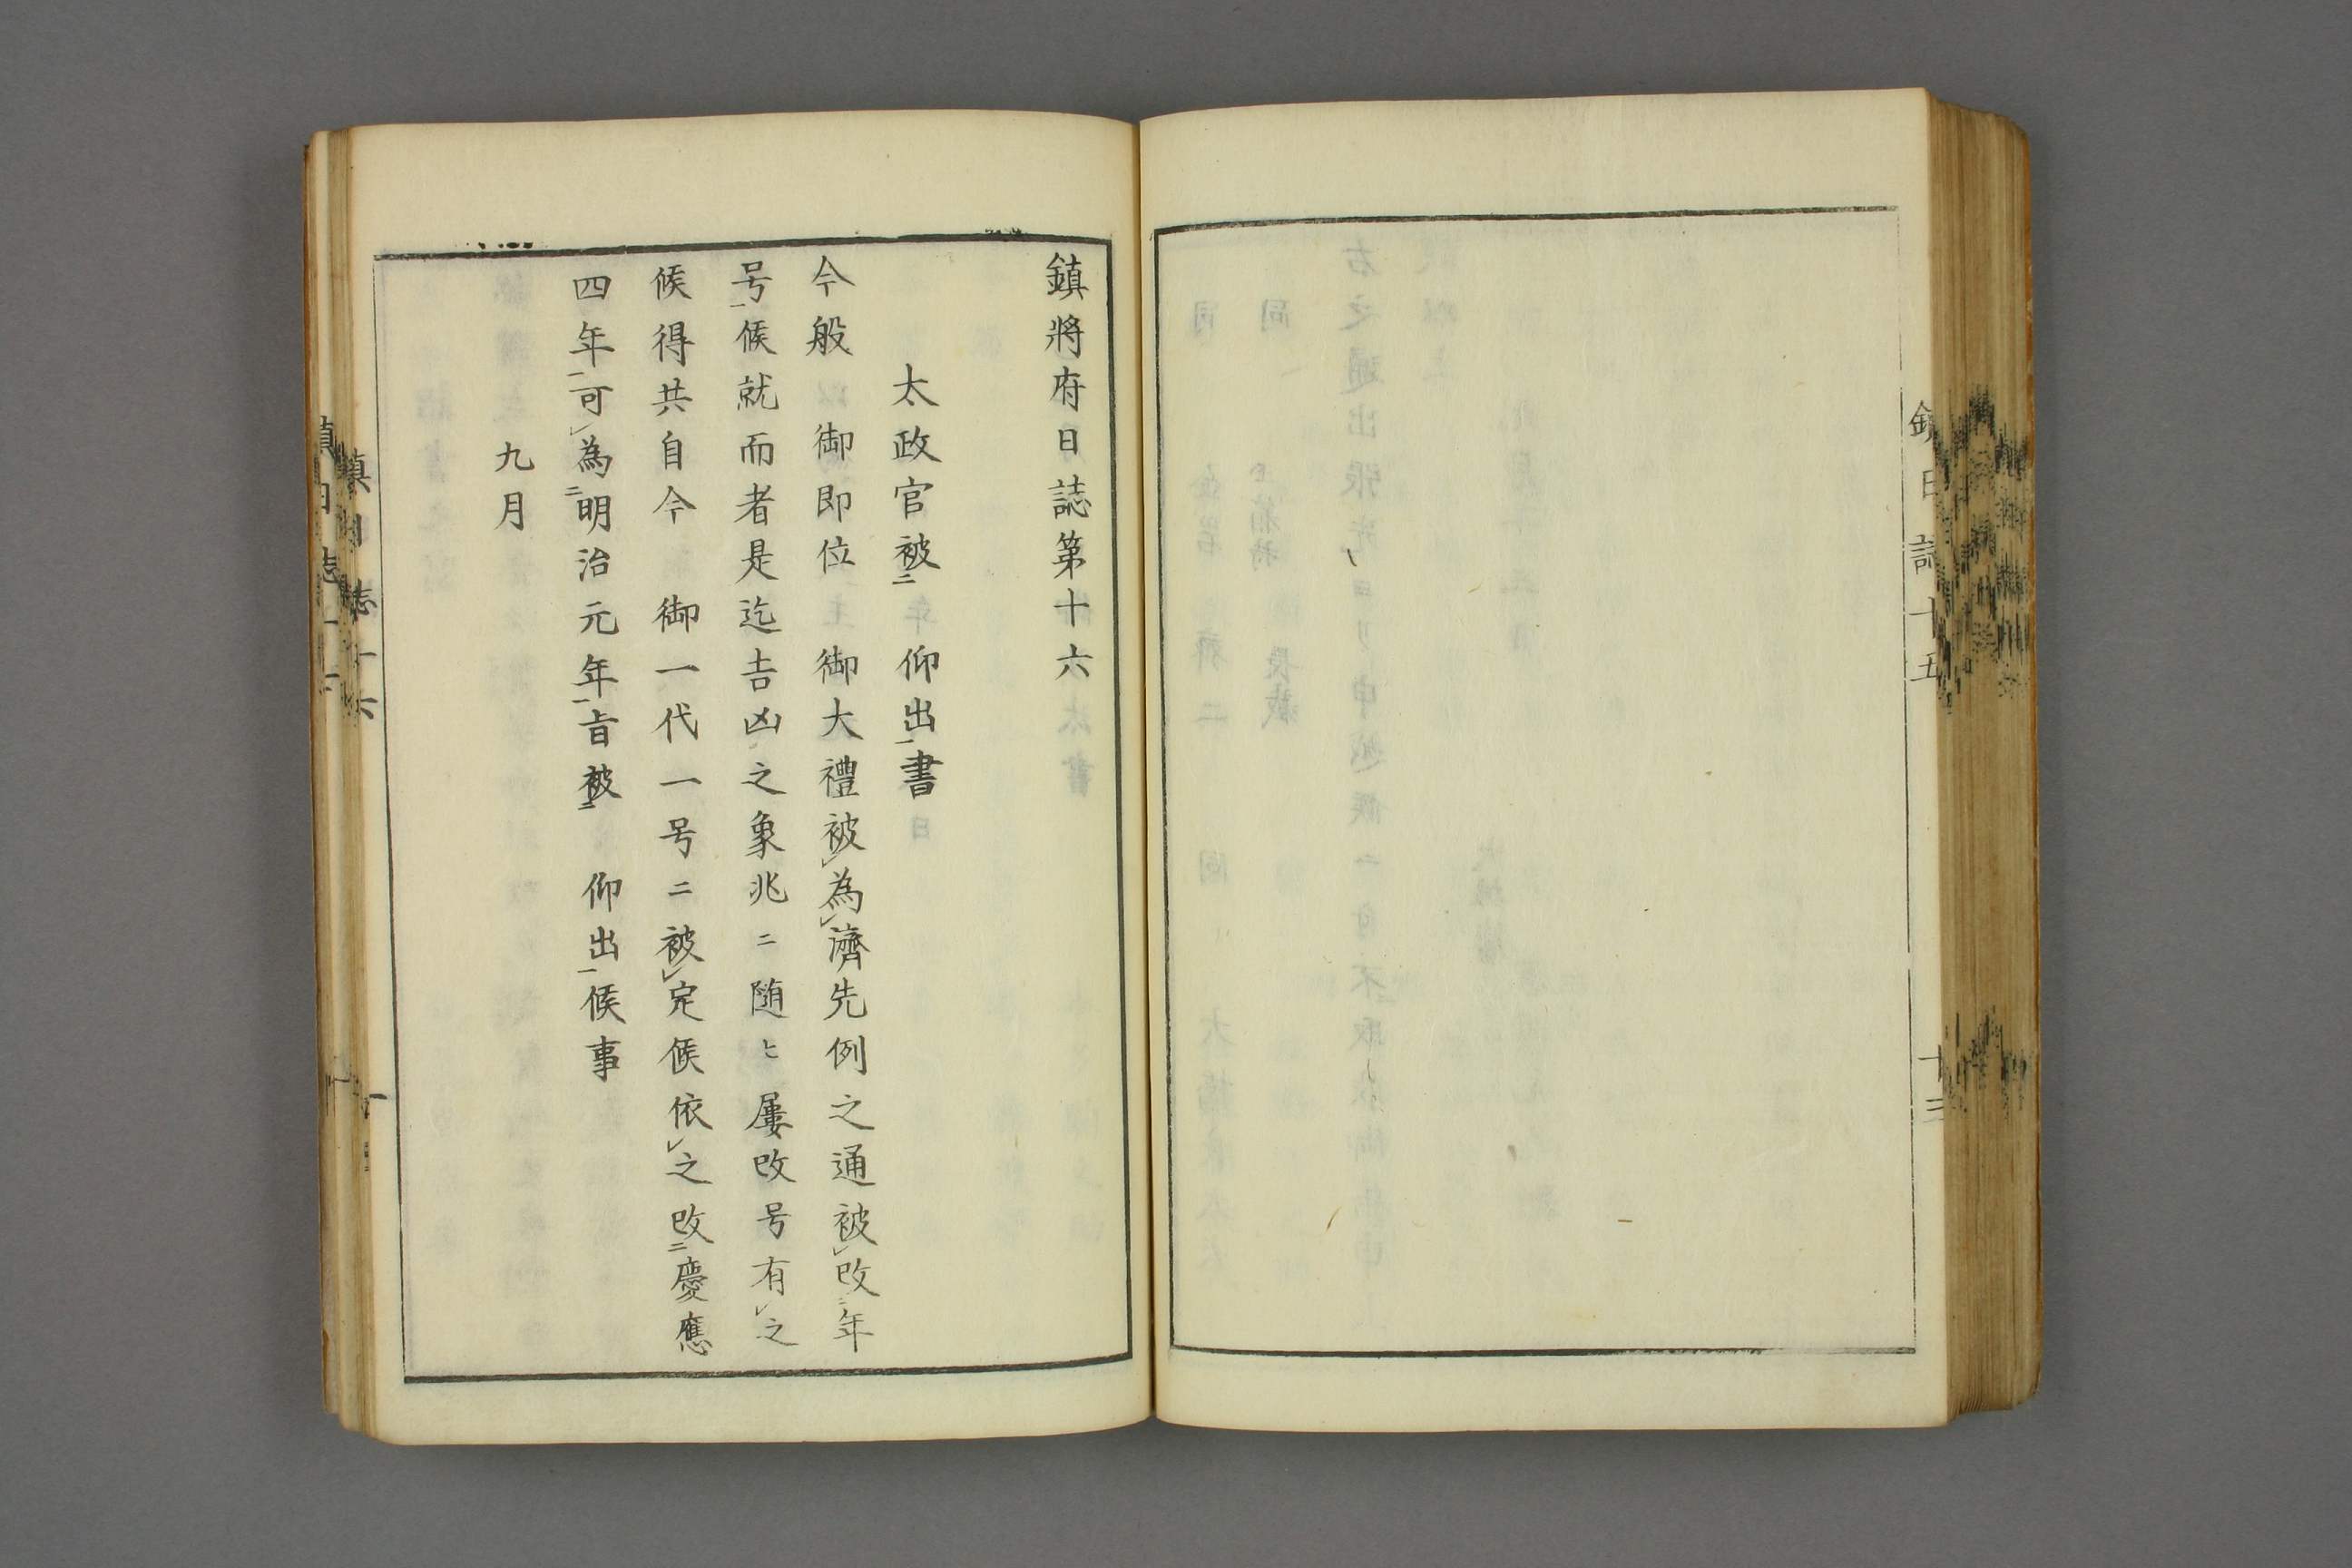 鎮日誌十五
十三
鎮將府日誌第十六
太政官被㆓ 仰出㆒書
今般 御即位 御大禮被㆑為㆑濟先例之通被㆑改㆓年
号㆒候就而者是迄吉凶之象兆ニ随ヒ屢改号有㆑之
候得共自今 御一代一号ニ被㆑定候依㆑之改㆓慶應
四年㆒可㆑為㆓明治元年㆒旨被㆓ 仰出㆒候事
九月
鎮日誌十六
一